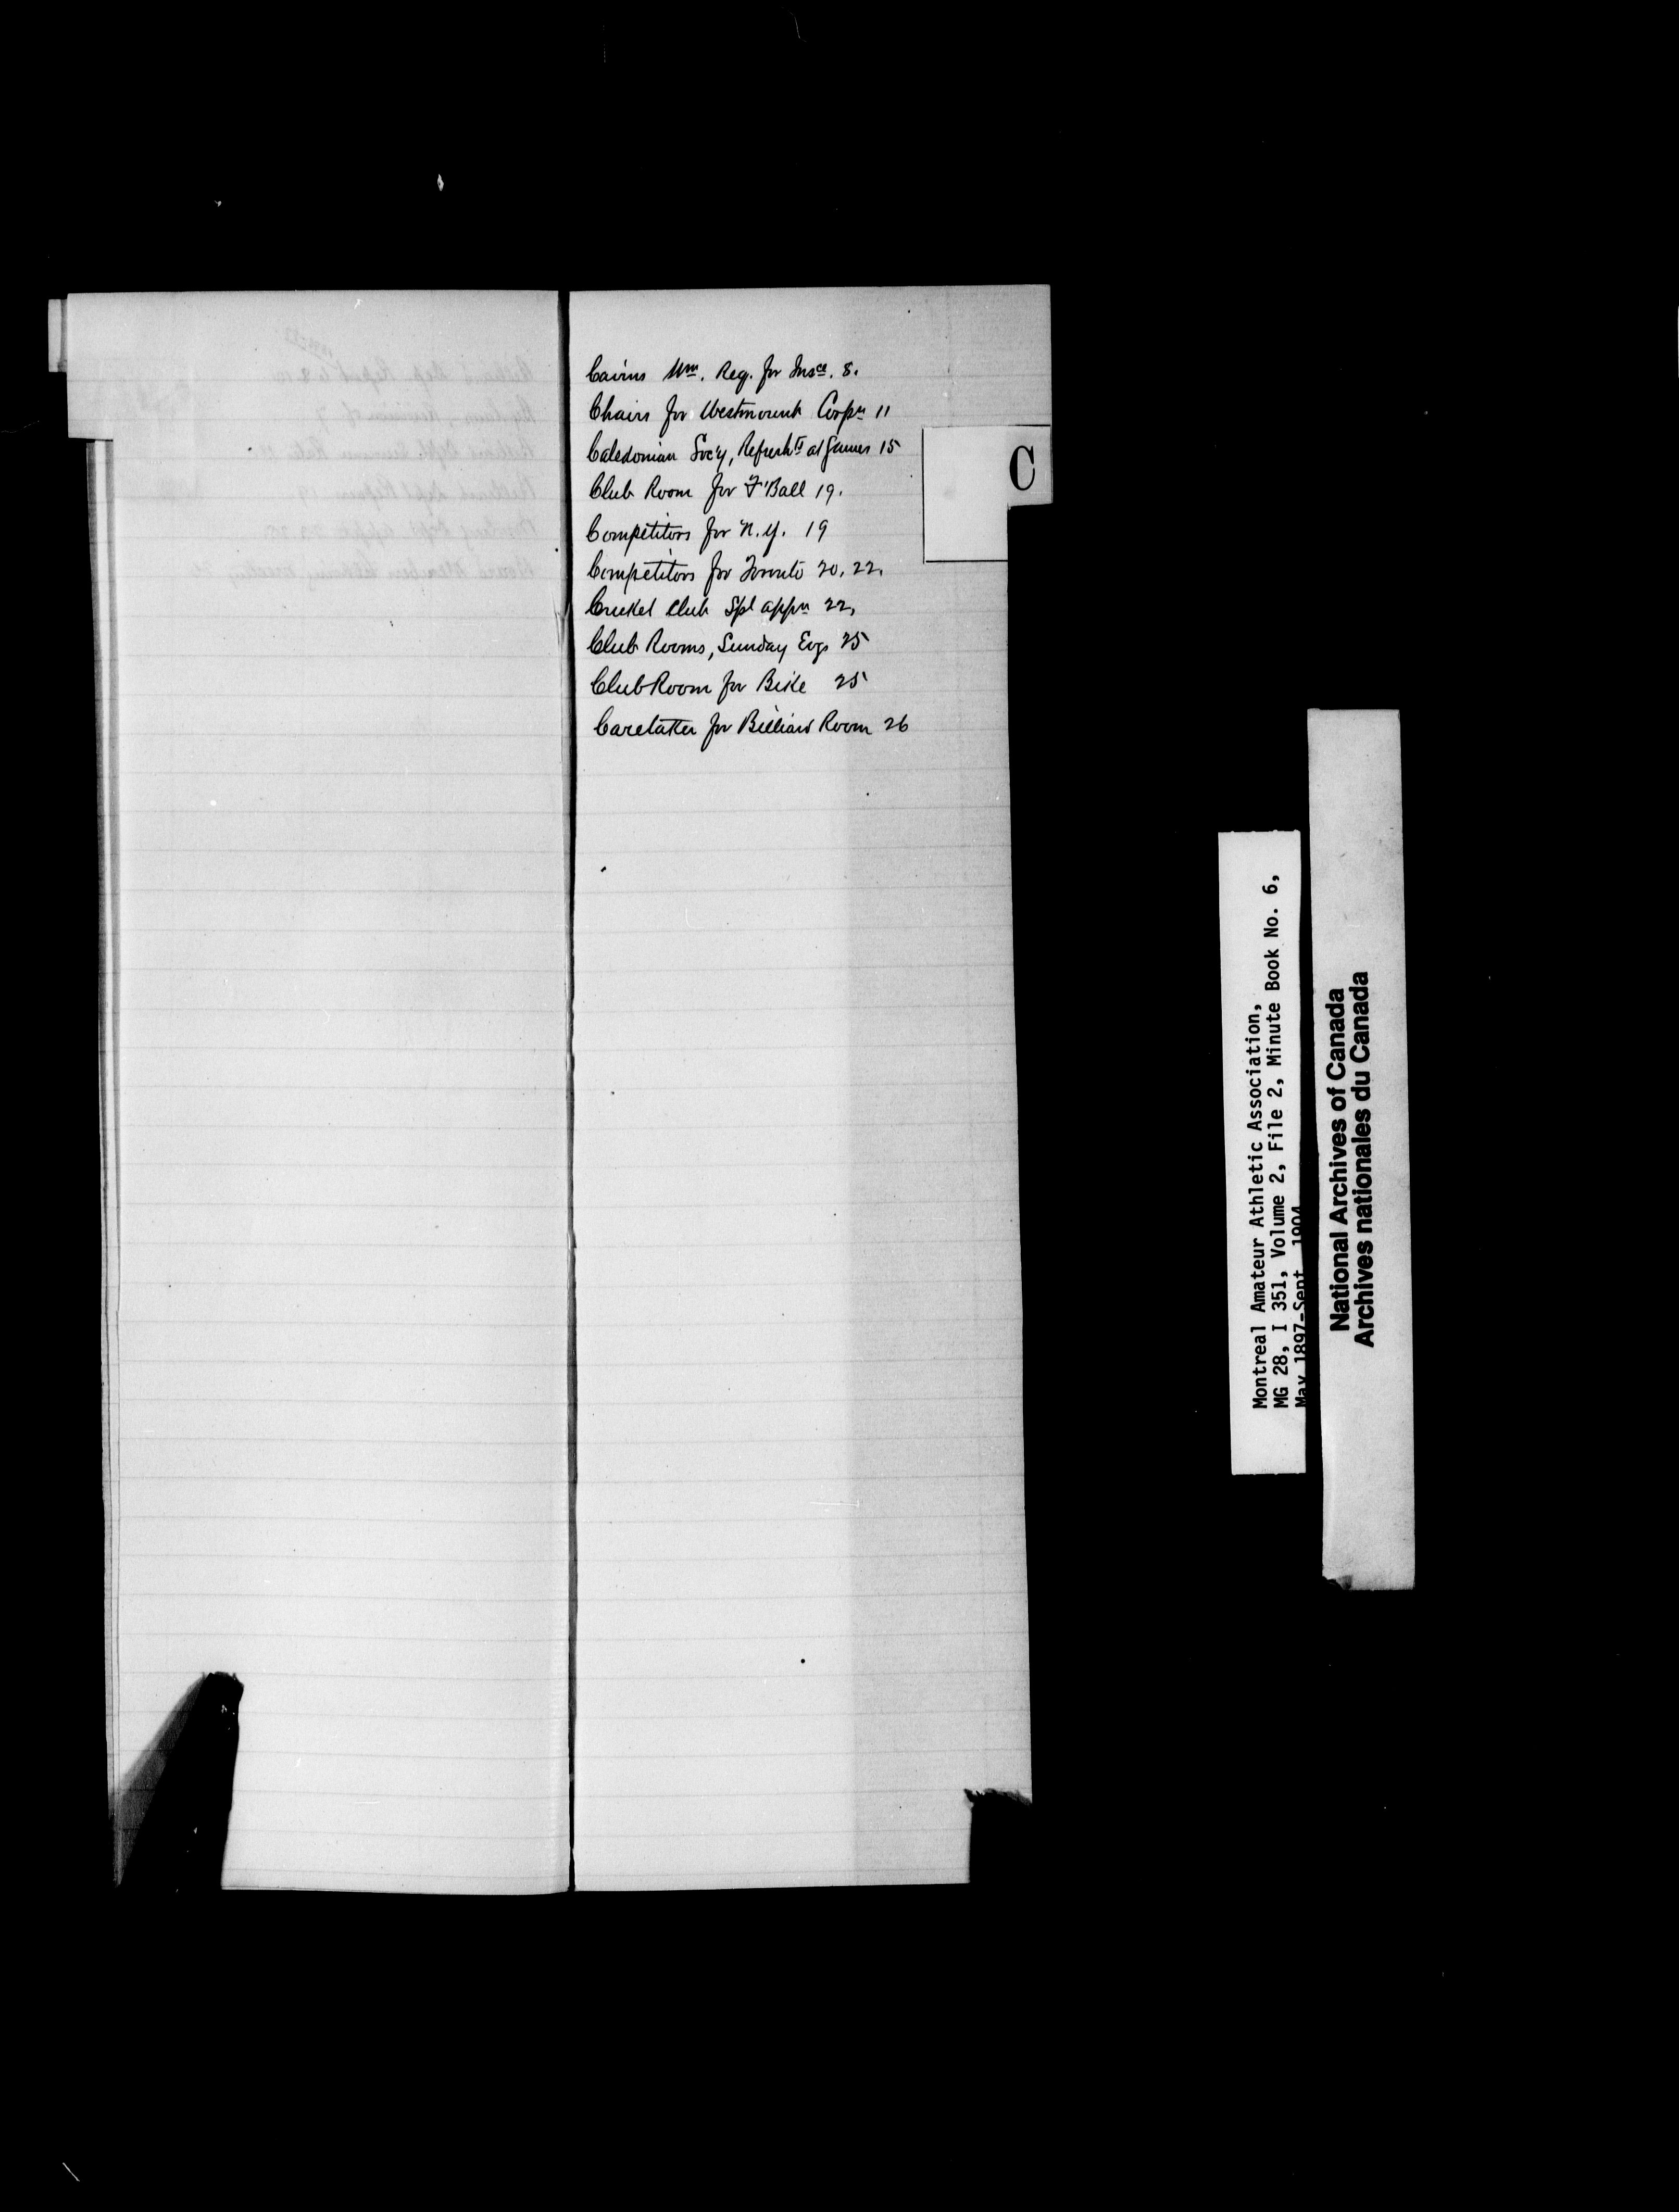 Cairns Wm. Reg. for Insce. 8.
Chairs for Westmount Corpn 11
Caledonian Soc'y, Refreshts at Games 15
Club Room for F'Ball 19.
Competitors for N.Y. 19
Competitors for Toronto 20, 22,
Cricket Club Spl appn 22,
Club Rooms, Sunday Evgs 25
Club Room for Bike 25
Caretaker for Billiard Room 26
C
Montreal Amateur Athletic Association,
MG 28, I 351, Volume 2, File 2, Minute Book No. 6,
May 1897-Sept 1904
National Archives of Canada
Archives nationales du Canada